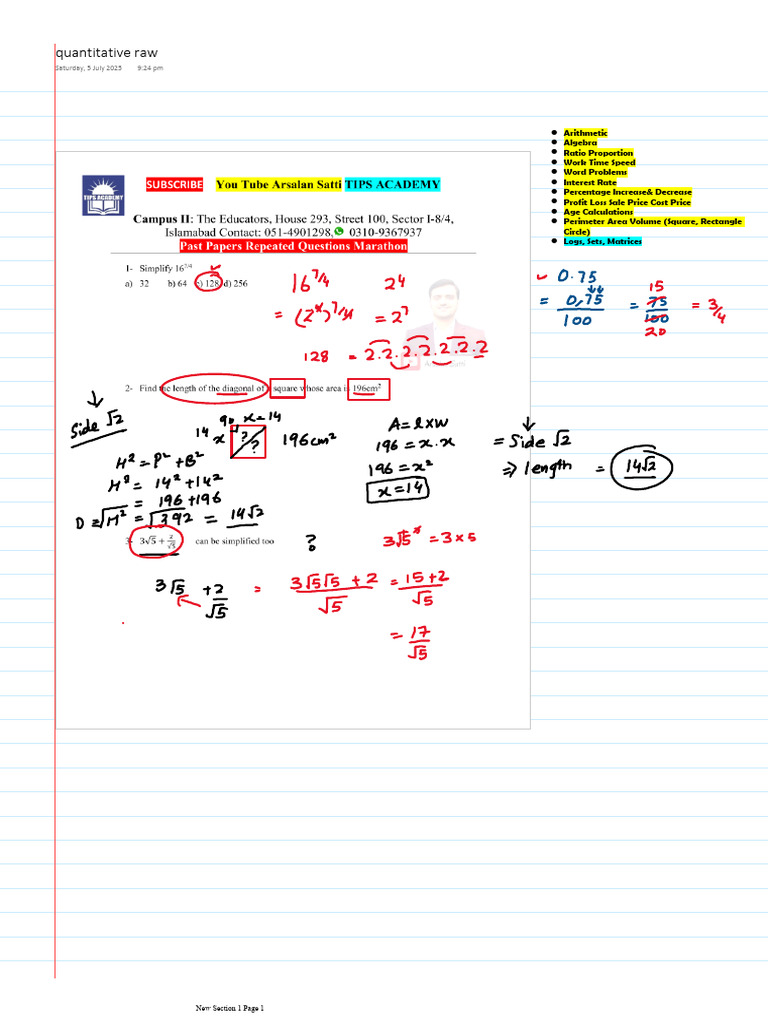 quantitative raw
Saturday, 5 July 2025 9:24 pm
Arithmetic
Algebra
Ratio Proportion
Work Time Speed
Word Problems
Interest Rate
Percentage Increase& Decrease
Profit Loss Sale Price Cost Price
Age Calculations
Perimeter Area Volume (Square, Rectangle
Circle)
Logs, Sets, Matrices
TIPS ACADEMY
SUBSCRIBE You Tube Arsalan Satti TIPS ACADEMY
Campus II: The Educators, House 293, Street 100, Sector I-8/4,
Islamabad Contact: 051-4901298, 0310-9367937
Past Papers Repeated Questions Marathon
1- Simplify 16^7/4
a) 32 b) 64 c) 128 d) 256
16^7/4 2^4
= (2^4)^7/4 = 2^7
128 = 2.2.2.2.2.2.2
0.75
= 0,75/100 = 75/100 = 3/4
15
20
2- Find the length of the diagonal of square whose area is 196cm²
Side √2
90 x=14
14 x ? ? 196cm²
A = l×w
196 = x.x
196 = x²
x=14
= Side √2
⇒ length = 14√2
H² = P² + B²
H² = 14² + 14²
= 196 + 196
D = √H² = √392 = 14√2
3- 3√5 + 2/√5 can be simplified too ?
3√5² = 3×5
3√5 + 2/√5 = 3√5√5 + 2/√5 = 15+2/√5
= 17/√5
New Section 1 Page 1